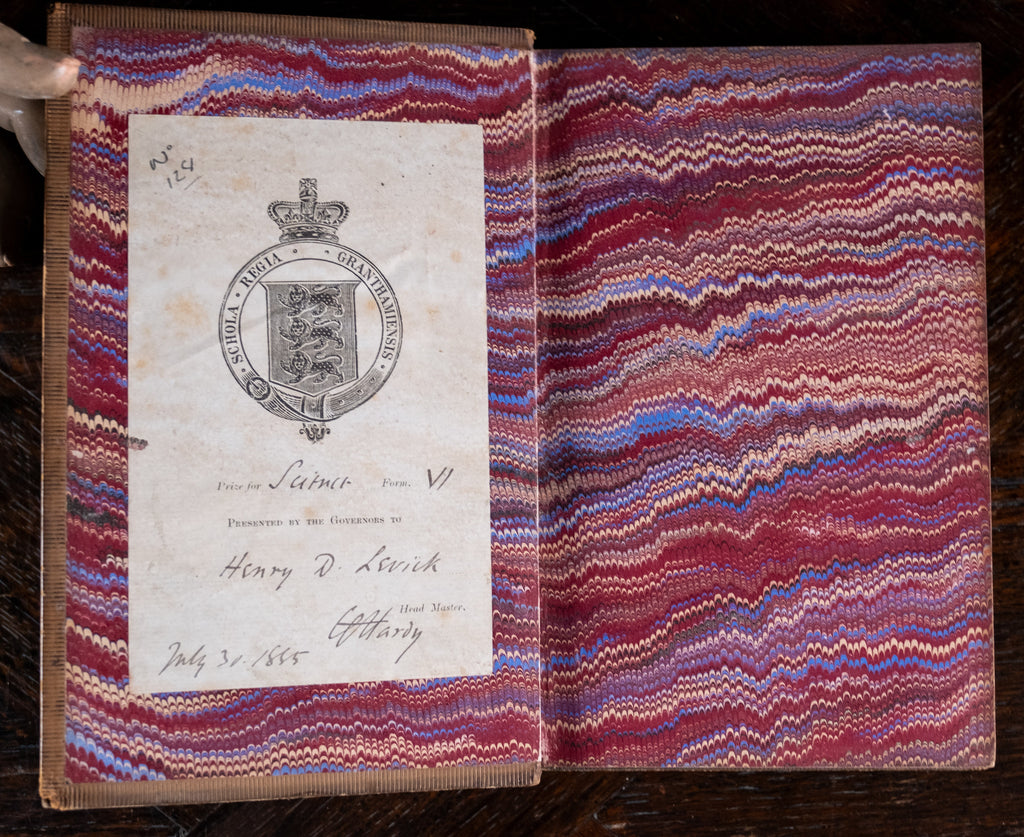 No
124/
SCHOLA · REGIA · GRANTHAMIENSIS ·
Prize for Science Form. VI
PRESENTED BY THE GOVERNORS TO
Henry D. Levick
Head Master.
Hardy
July 30. 1885